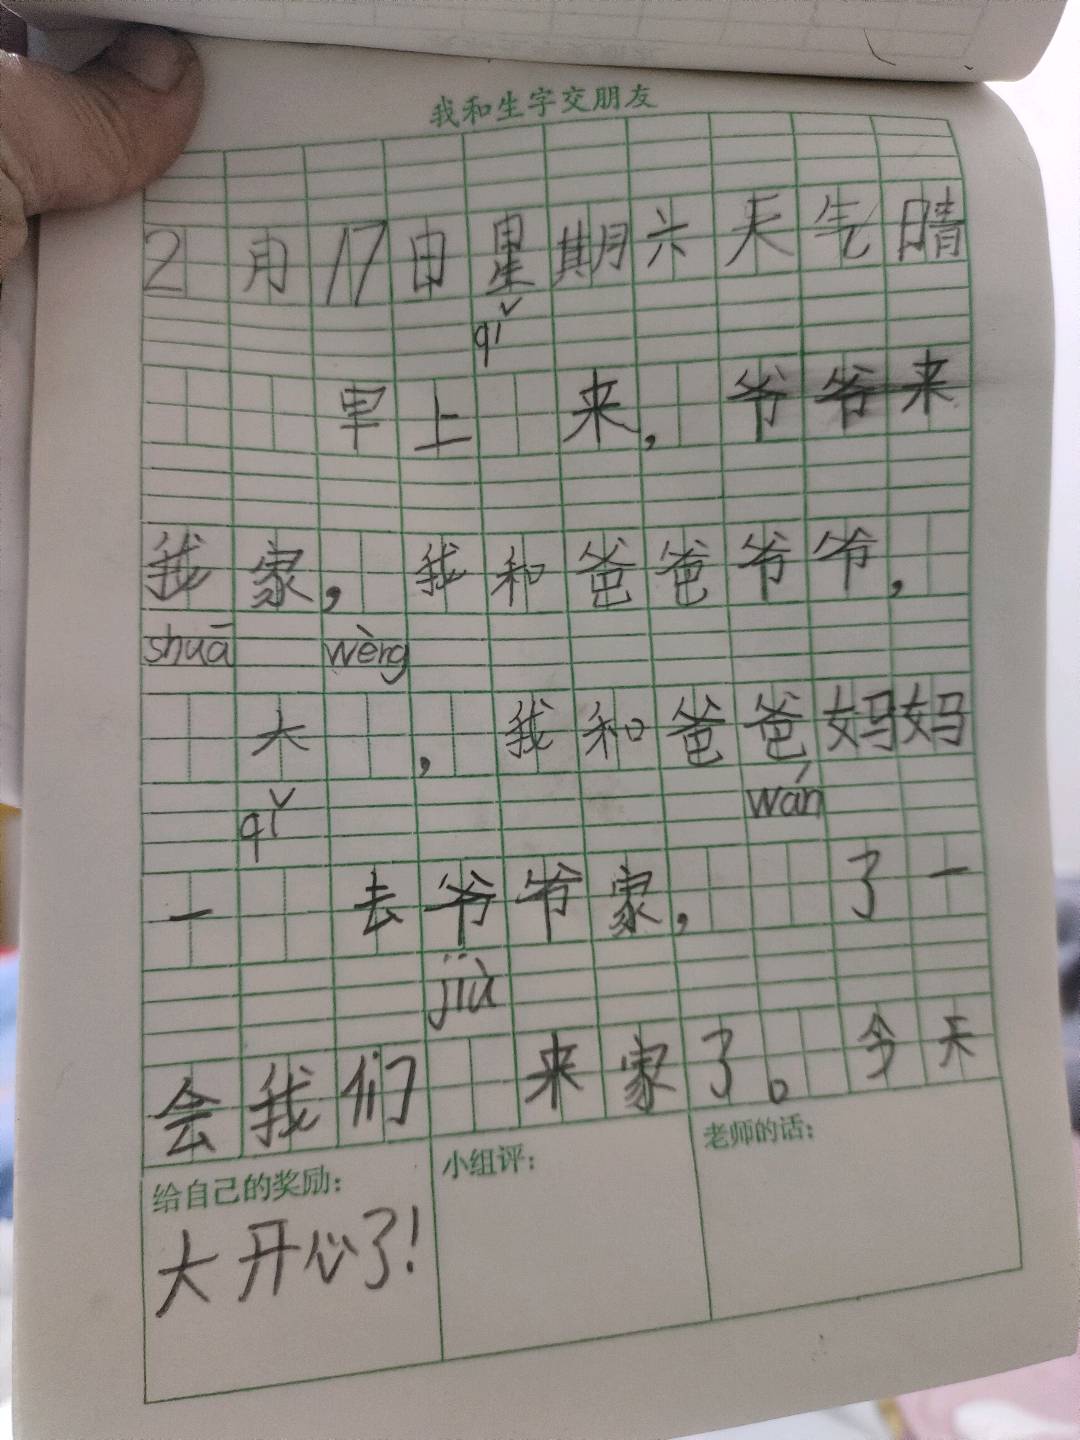 我和生字交朋友
2月17日星期六天气晴
qǐ
早上 来，爷爷来
我家，我和爸爸爷爷，
shuā wèng
大 ，我和爸爸妈妈
qǐ wán
一 去爷爷家， 了一
jià
会我们 来家了。今天
给自己的奖励：
大开心了！
小组评：
老师的话：